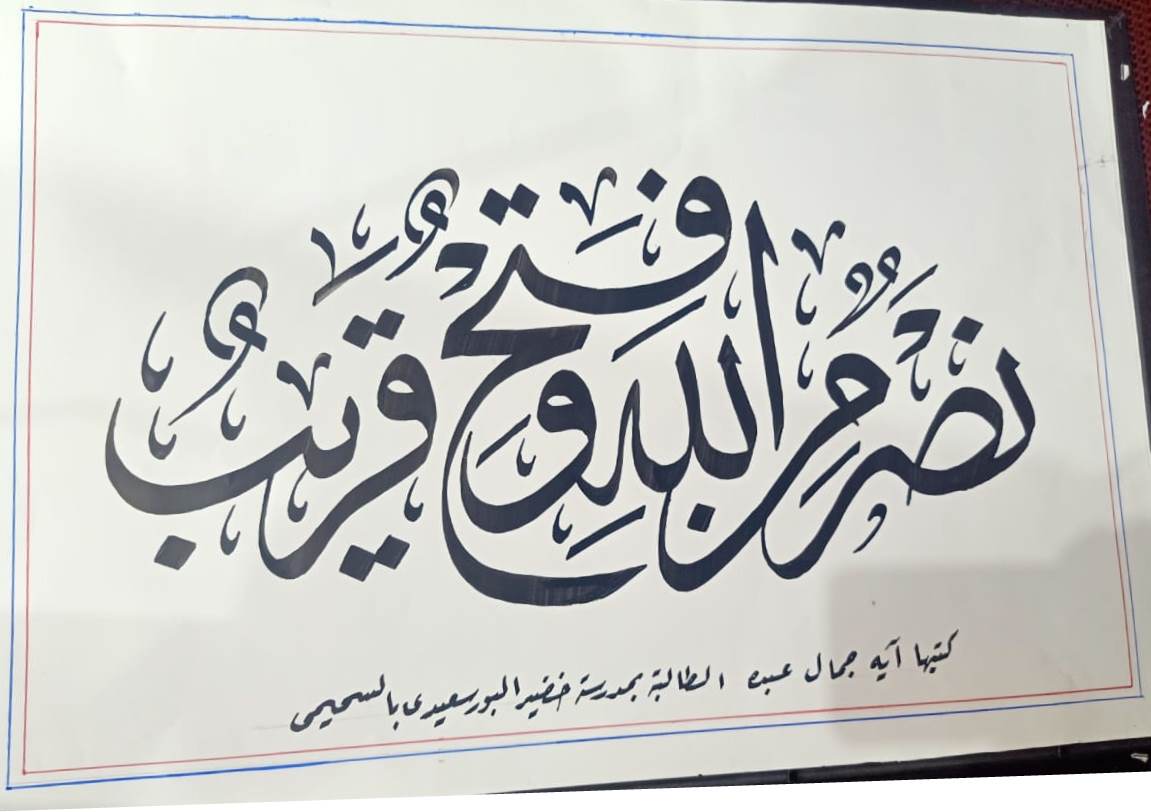 نَصْرٌ مِنَ اللهِ وَفَتْحٌ قَرِيبٌ
كتبها آيه جمال عبده الطالبة بمدرسة خضير البورسعيدى بالسحيمى